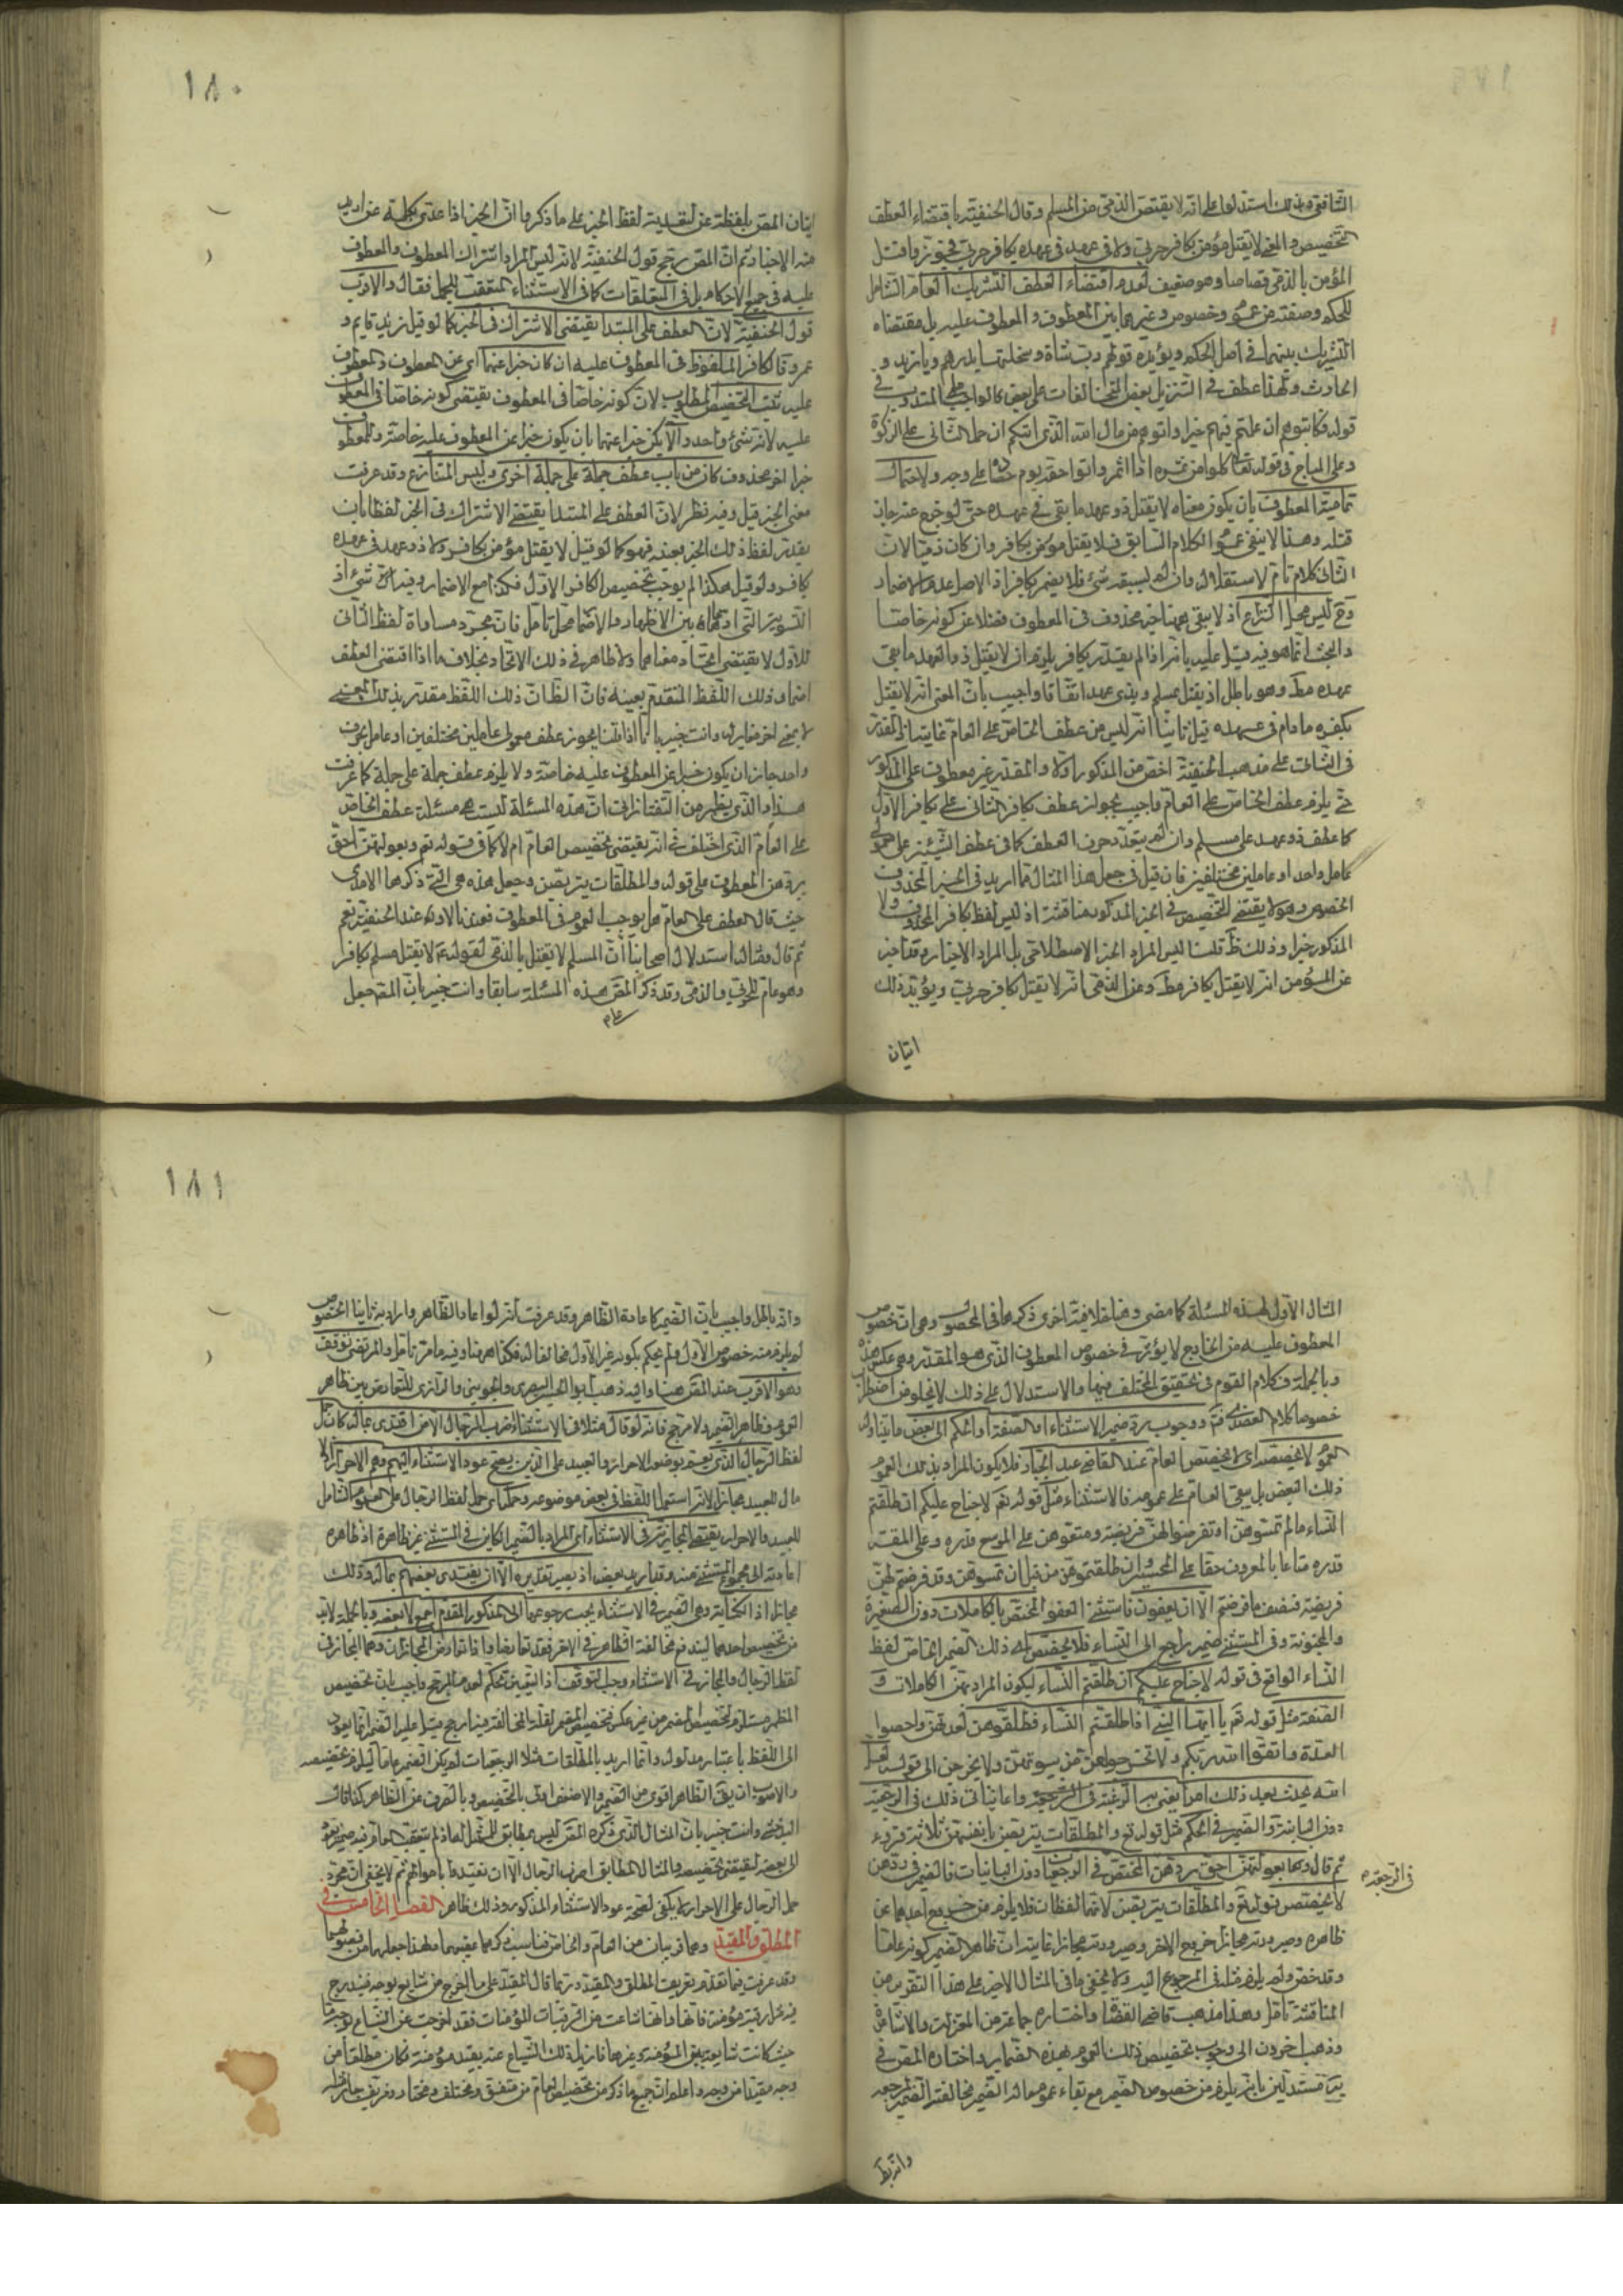 الشافعية ولذلك استدلوا على انه لا يقتص الذمي من المسلم وقال الحنفية باقتضاء العطف
التخصيص والمعنى لا يقتل مؤمن بكافر حربي ولا ذو عهد في عهده بكافر حربي فجوزوا قتل
المؤمن بالذمي قصاصا وهو ضعيف لعدم اقتضاء العطف التشريك العام الشامل
للحكم وصفته من عموم وخصوص وغيرهما بين المعطوف والمعطوف عليه بل مقتضاه
التشريك بينهما في اصل الحكم ويؤيده قولهم رب شاة وسخلتها بدرهم ويا زيد و
الحارث ولهذا عطف في التنزيل بعض المتخالفات على بعض كالواجب على المندوب في
قوله فكاتبوهم ان علمتم فيهم خيرا واتوهم من مال الله الذي اتيكم ان حمل الثاني على الزكوة
وعلى المباح في قوله تعالى كلوا من ثمره اذا اثمر واتوا حقه يوم حصاده على وجه ولاحتمال
تمامية المعطوف بان يكون معناه لا يقتل ذو عهد ما بقي في عهده حتى لو خرج عنه جاز
قتله وهذا لا ينفي عموم الكلام السابق فلا يقتل مؤمن بكافر وان كان ذميا لان
الثاني كلام تام لاستقلاله وان لم يسبقه شيء فلا يضمر بكافر اذ الاصل عدم الاضمار
وح ليس محل النزاع اذ لا يبقى ههنا خبر محذوف في المعطوف فضلا عن كونه خاصا
والبحث انما هو فيه قيل عليه بانه اذا لم يقدر بكافر يلزم ان لا يقتل ذو العهد ما بقي
عهده مط وهو باطل اذ يقتل بمسلم وبذي عهد اتفاقا واجيب بان المعنى انه لا يقتل
بكفره ما دام في عهده قيل ثانيا انه ليس من عطف الخاص على العام غايته ان المقدر
في الثاني على مذهب الحنفية اخص من المذكور اولا والمقدر غير معطوف على المذكور
حتى يلزم عطف الخاص على العام واجيب بجواز عطف بكافر الثاني على بكافر الاول
كما عطف ذو عهد على مسلم وان لم يتعدد حرف العطف كما في عطف الشيئين على معمولي
عامل واحد او عاملين مختلفين فان قيل في جعل هذا المثال مما اريد في الخبر المحذوف
الخصوص وهو لا يقتضي التخصيص في الخبر المذكور مناقشة اذ ليس لفظ بكافر المحذوف ولا
المذكور خبرا وذلك ظ قلنا ليس المراد الخبر الاصطلاحي بل المراد الاخبار وقد اخبر
عن المؤمن انه لا يقتل بكافر مط وعن الذمي انه لا يقتل بكافر حربي ويؤيد ذلك
اتيان
١٨٠
اتيان المص بلفظة عن لتعدية لفظ الخبر على ما ذكروا ان الخبر اذا عدي بكلمة عن اريد
منه الاخبار ثم ان المص رجح قول الحنفية لانه ليس المراد اشتراك المعطوف والمعطوف
عليه في جميع الاحكام بل في المتعلقات كما في الاستثناء المتعقب للجمل فقال والاقرب
قول الحنفية لان العطف على المبتدا يقتضي الاشتراك في الخبر كما لو قيل زيد قايم و
عمرو فالكافر الملفوظ في المعطوف عليه ان كان خبرا عنهما اي عن المعطوف والمعطوف
عليه ثبت التخصيص المطلوب لان كونه خاصا في المعطوف يقتضي كونه خاصا في المعطوف
عليه لانه شيء واحد والا يكن خبرا عنهما بان يكون خبرا عن المعطوف عليه خاصة وللمعطوف
خبرا اخر محذوف كان من باب عطف جملة على جملة اخرى وليس المتنازع وقد عرفت
معنى الخبر قيل وفيه نظر لان العطف على المبتدا يقتضي الاشتراك في الخبر لفظا بان
يقدر لفظ ذلك الخبر بعينه فهو كما لو قيل لا يقتل مؤمن بكافر ولا ذو عهد في عهده
بكافر ولو قيل هكذا لم يوجب تخصيص الكافر الاول فكذا مع الاضمار وفيه شيء اذ
التسوية التي ادعاها بين الاظهار والاضمار محل تامل فان مجرد مساواة لفظ الثاني
للاول لا يقتضي اتحاد معناهما ولا ظاهر في ذلك الاتحاد بخلاف ما اذا اقتضى العطف
اضمار ذلك اللفظ المتقدم بعينه فان الظ ان ذلك اللفظ مقدر بذلك المعنى
لا بمعنى اخر مغاير له وانت خبير بانا اذا قلنا بجواز عطف معمولي عاملين مختلفين او عامل بحرف
واحد جاز ان يكون خبرا عن المعطوف عليه خاصة ولا يلزم عطف جملة على جملة كما عرفت
هذا والذي يظهر من التفتازاني ان هذه المسئلة ليست هي مسئلة عطف الخاص
على العام الذي اختلف في انه يقتضي تخصيص العام ام لا كما في قوله تع وبعولتهن احق
بردهن المعطوف على قوله والمطلقات يتربصن وجعل هذه هي التي ذكرها الامدي
حيث قال العطف على العام هل يوجب العموم في المعطوف فعندنا لا وعند الحنفية نعم
ثم قال ومثال استدلال اصحابنا أن المسلم لا يقتل بالذمي لقوله ع لا يقتل مسلم بكافر
وهو عام للحربي والذمي وقد ذكر المص هذه المسئلة سابقا وانت خبير بان المص جعل
المثال الاول لهذه المسئلة كما مضى وهنا خلافية اخرى ذكرها في المحصول وهي ان خصوص
المعطوف عليه من الخارج لا يؤثر في خصوص المعطوف الذي هو المقدر وهي عكس هذه
وبالجملة فكلام القوم في تحقيق المختلف فيها والاستدلال على ذلك لا يخلو من اضطراب
خصوصا كلام العضدي فتم ووجوب رد ضمير الاستثناء او الصفة او الحكم الى بعض ما يتناوله
العموم لا يخصصه اي لا يخصص العام عند القاضي عبد الجبار فلا يكون المراد بذلك العموم
ذلك البعض بل يبقى العام على عمومه فالاستثناء مثل قوله تع لا جناح عليكم ان طلقتم
النساء ما لم تمسوهن او تفرضوا لهن فريضة ومتعوهن على الموسع قدره وعلى المقتر
قدره متاعا بالمعروف حقا على المحسنين وان طلقتموهن من قبل ان تمسوهن وقد فرضتم لهن
فريضة فنصف ما فرضتم الا ان يعفون فاستثني العفو المختص بالكاملات دون الصغيرة
والمجنونة وفي المستثنى ضمير راجع الى النساء فلا يخصص ذلك الضمير الخاص لفظ
النساء الواقع في قوله لا جناح عليكم ان طلقتم النساء ليكون المراد بهن الكاملات و
الصفة مثل قوله تع يا ايها النبي اذا طلقتم النساء فطلقوهن لعدتهن واحصوا
العدة واتقوا الله ربكم ولا تخرجوهن من بيوتهن ولا يخرجن الى قوله لعل
الله يحدث بعد ذلك امرا يعني به الرغبة في الرجعة واتيانا في ذلك في الرجعية
دون البائنة والضمير في الحكم مثل قوله تع والمطلقات يتربصن بانفسهن ثلاثة قروء
ثم قال وبعولتهن احق بردهن المختص في الرجعيات دون البائنات فالضمير في ردهن
في الرجعة
لا يخصص قوله تع والمطلقات يتربصن لانهما لفظان فلا يلزم من خروج احدهما عن
ظاهره وصيرورته مجازا خروج الاخر وصيرورته مجازا غايته ان ظاهر الضمير كونه عاما
وقد خص ولم يلزم مثله في المرجوع اليه ولا يخفى ما في المثال الاخير على هذا التقدير من
المناقشة تامل وهذا مذهب قاضي القضاة واختاره جماعة من المعتزلة والاشاعرة
وذهب اخرون الى وجوب تخصيص ذلك العموم بهذه الضماير واختاره المص في
يه مستدلين بانه يلزم من خصوص الضمير مع بقاء عموم ما له الضمير مخالفة الضمير لمرجعه
وانه بط
١٨١
وانه باطل واجيب بان الضمير كاعادة الظاهر وقد عرفت انه لو اعاد الظاهر واراد به ثانيا الخصوص
لم يلزم منه خصوص الاول ولم يحكم بكونه غير الاول مخالفا له فكذا ههنا وفيه ما مر تامل والمرتضى توقف
وهو الاقرب عند المص هنا واليه ذهب ابو الحسين البصري والجويني والرازي للتعارض بين ظاهر
العموم وظاهر الضمير ولا مرجح فانه لو قال مثلا في الاستثناء اضرب الرجال الا من افتدى بماله كان حمل
لفظ الرجال الذي يعم بوضعه الاحرار والعبيد على الذين يصح عود الاستثناء اليهم وهم الاحرار اذ لا
مال للعبيد مجازا لانه استعمال اللفظ في بعض موضوعه وحمله اي حمل لفظ الرجال على العموم الشامل
للعبيد والاحرار يقتضي المجازية في الاستثناء اي المراد بالضمير الكاين في المستثنى غير ظاهره اذ ظاهره
اعادته الى مجموع المستثنى منه وقد اريد بعضه اذ يصير تقديره الا ان يفتدي بعضهم بماله وذلك
مجاز اذ الكناية وهي الضمير في الاستثناء يجب رجوعها الى المذكور المقدم اجمع لا بعضه وبالجملة لابد
من تخصيص احدهما ليندفع مخالفة الظاهر في الاخر فقد تعارضا واذا تعارض المجازان وهما المجاز في
لفظ الرجال والمجاز في الاستثناء وجب التوقف اذ التعيين تحكم لعدم المرجح واجيب بان تخصيص
المظهر مستلزم لتخصيص المضمر من غير عكس فتخصيص المضمر لقلة المخالفة فيه ارجح قيل عليه الضمير انما يعود
الى اللفظ باعتبار مدلوله وانما اريد بالمطلقات مثلا الرجعيات لم يكن الضمير عاما ليلزم تخصيصه
والاصوب ان يق الظاهر اقوى من الضمير والاضعف اولى بالتخصيص وبالصرف عن الظاهر كذا قال
البدخشي وانت خبير بان المثال الذي ذكره المص ليس بمطابق للممثل له اذ لم يتعقب العام فيه ضمير يعود
الى بعضه ليقتضي تخصيصه والمثال المطابق اضرب الرجال الا ان يفتدوا باموالهم ثم لا يخفى ان مجرد
حمل الرجال على الاحرار لا يكفي لصحة عود الاستثناء المذكور وذلك ظاهر الفصل الخامس في
المطلق والمقيد وهما قريبان من العام والخاص فناسب ذكرهما عقيبهما ولهذا جعلهما من فصولهما
وقد عرفت فيما تقدم تعريف المطلق والمقيد وربما قال المقيد على ما اخرج من شايع بوجه فيندرج
فيه رقبة مؤمنة فانها وان شاعت من الرقبات المؤمنات فقد اخرجت عن الشياع بوجه ما
حيث كانت شايعة بين المؤمنة وغيرها فازيل ذلك الشياع عنه بقيد مؤمنة فكان مطلقا من
وجه مقيدا من وجه واعلم ان جميع ما ذكر من تخصيص العام من متفق ومختلف ومختار ومزيف جار هنا